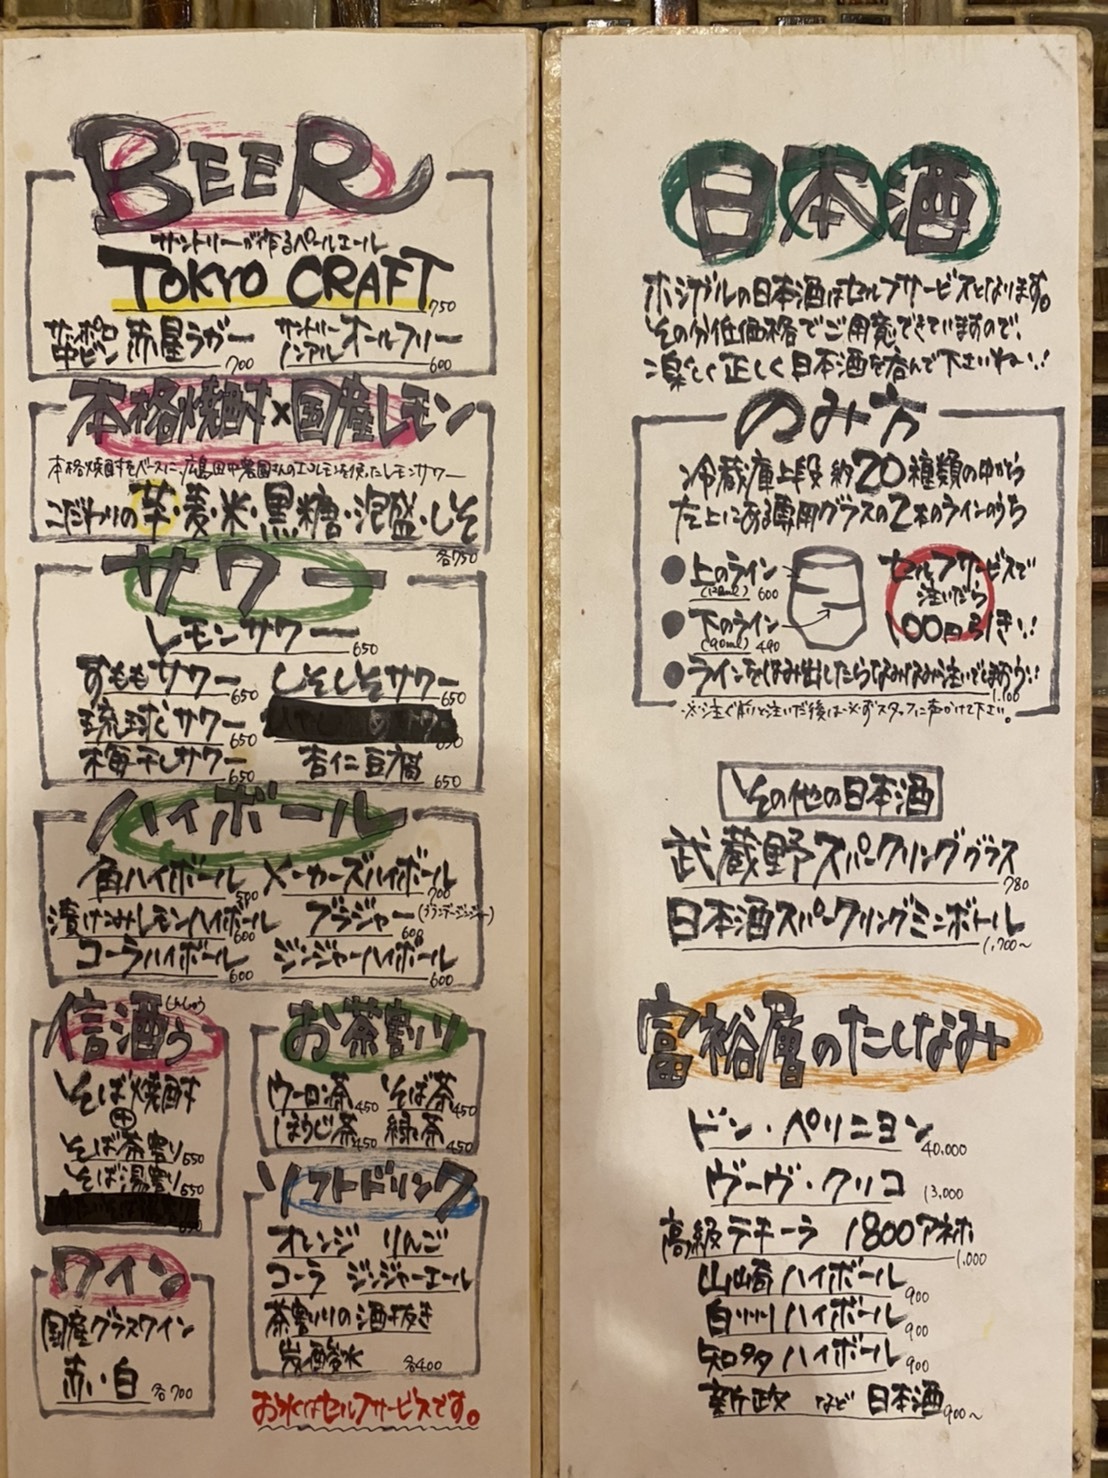 BEER
サントリーが作るペールエール
TOKYO CRAFT 750
サッポロ中ビン 赤星ラガー 700
サントリーノンアル オールフリー 600
本格焼酎×国産レモン
本格焼酎をベースに、広島田中農園さんのエコレモンを使ったレモンサワー
こだわりの芋・麦・米・黒糖・泡盛・しそ
各750
サワー
レモンサワー 650
すももサワー 650 しそしそサワー 650
琉球サワー 650
梅干しサワー 650 杏仁豆腐 650
ハイボール
角ハイボール 500 メーカーズハイボール 700
漬けこみレモンハイボール 600 ブラジャー(ブランデージンジャー) 600
コーラハイボール 600 ジンジャーハイボール 600
信酒う(しんしゅう)
そば焼酎
⊕
そば茶割り 550
そば湯割り 550
お茶割り
ウーロン茶 450 そば茶 450
ほうじ茶 450 緑茶 450
ソフトドリンク
オレンジ りんご
コーラ ジンジャーエール
茶割りの酒抜き
炭酸水 各400
ワイン
国産グラスワイン
赤・白 各700
お水はセルフサービスです。
日本酒
ホシガルの日本酒はセルフサービスとなります。
その分低価格でご用意できていますので、
楽しく正しく日本酒を呑んで下さいね!!
のみ方
冷蔵庫上段 約20種類の中から
左上にある専用グラスの2本のラインのうち
●上のライン (120ml) 600
●下のライン (90ml) 490
セルフサービスで
注いだら
100円引き!!
●ラインをはみ出したらなみなみ注いでしまおう!! 1,100
※注ぐ前と注いだ後は必ずスタッフに声かけて下さい。
その他の日本酒
武蔵野スパークリンググラス 780
日本酒スパークリングミニボトル 1,700〜
富裕層のたしなみ
ドン・ペリニヨン 40,000
ヴーヴ・クリコ 13,000
高級テキーラ 1800アネホ 1,000
山崎ハイボール 900
白州ハイボール 900
知多ハイボール 900
新政 など 日本酒 900〜